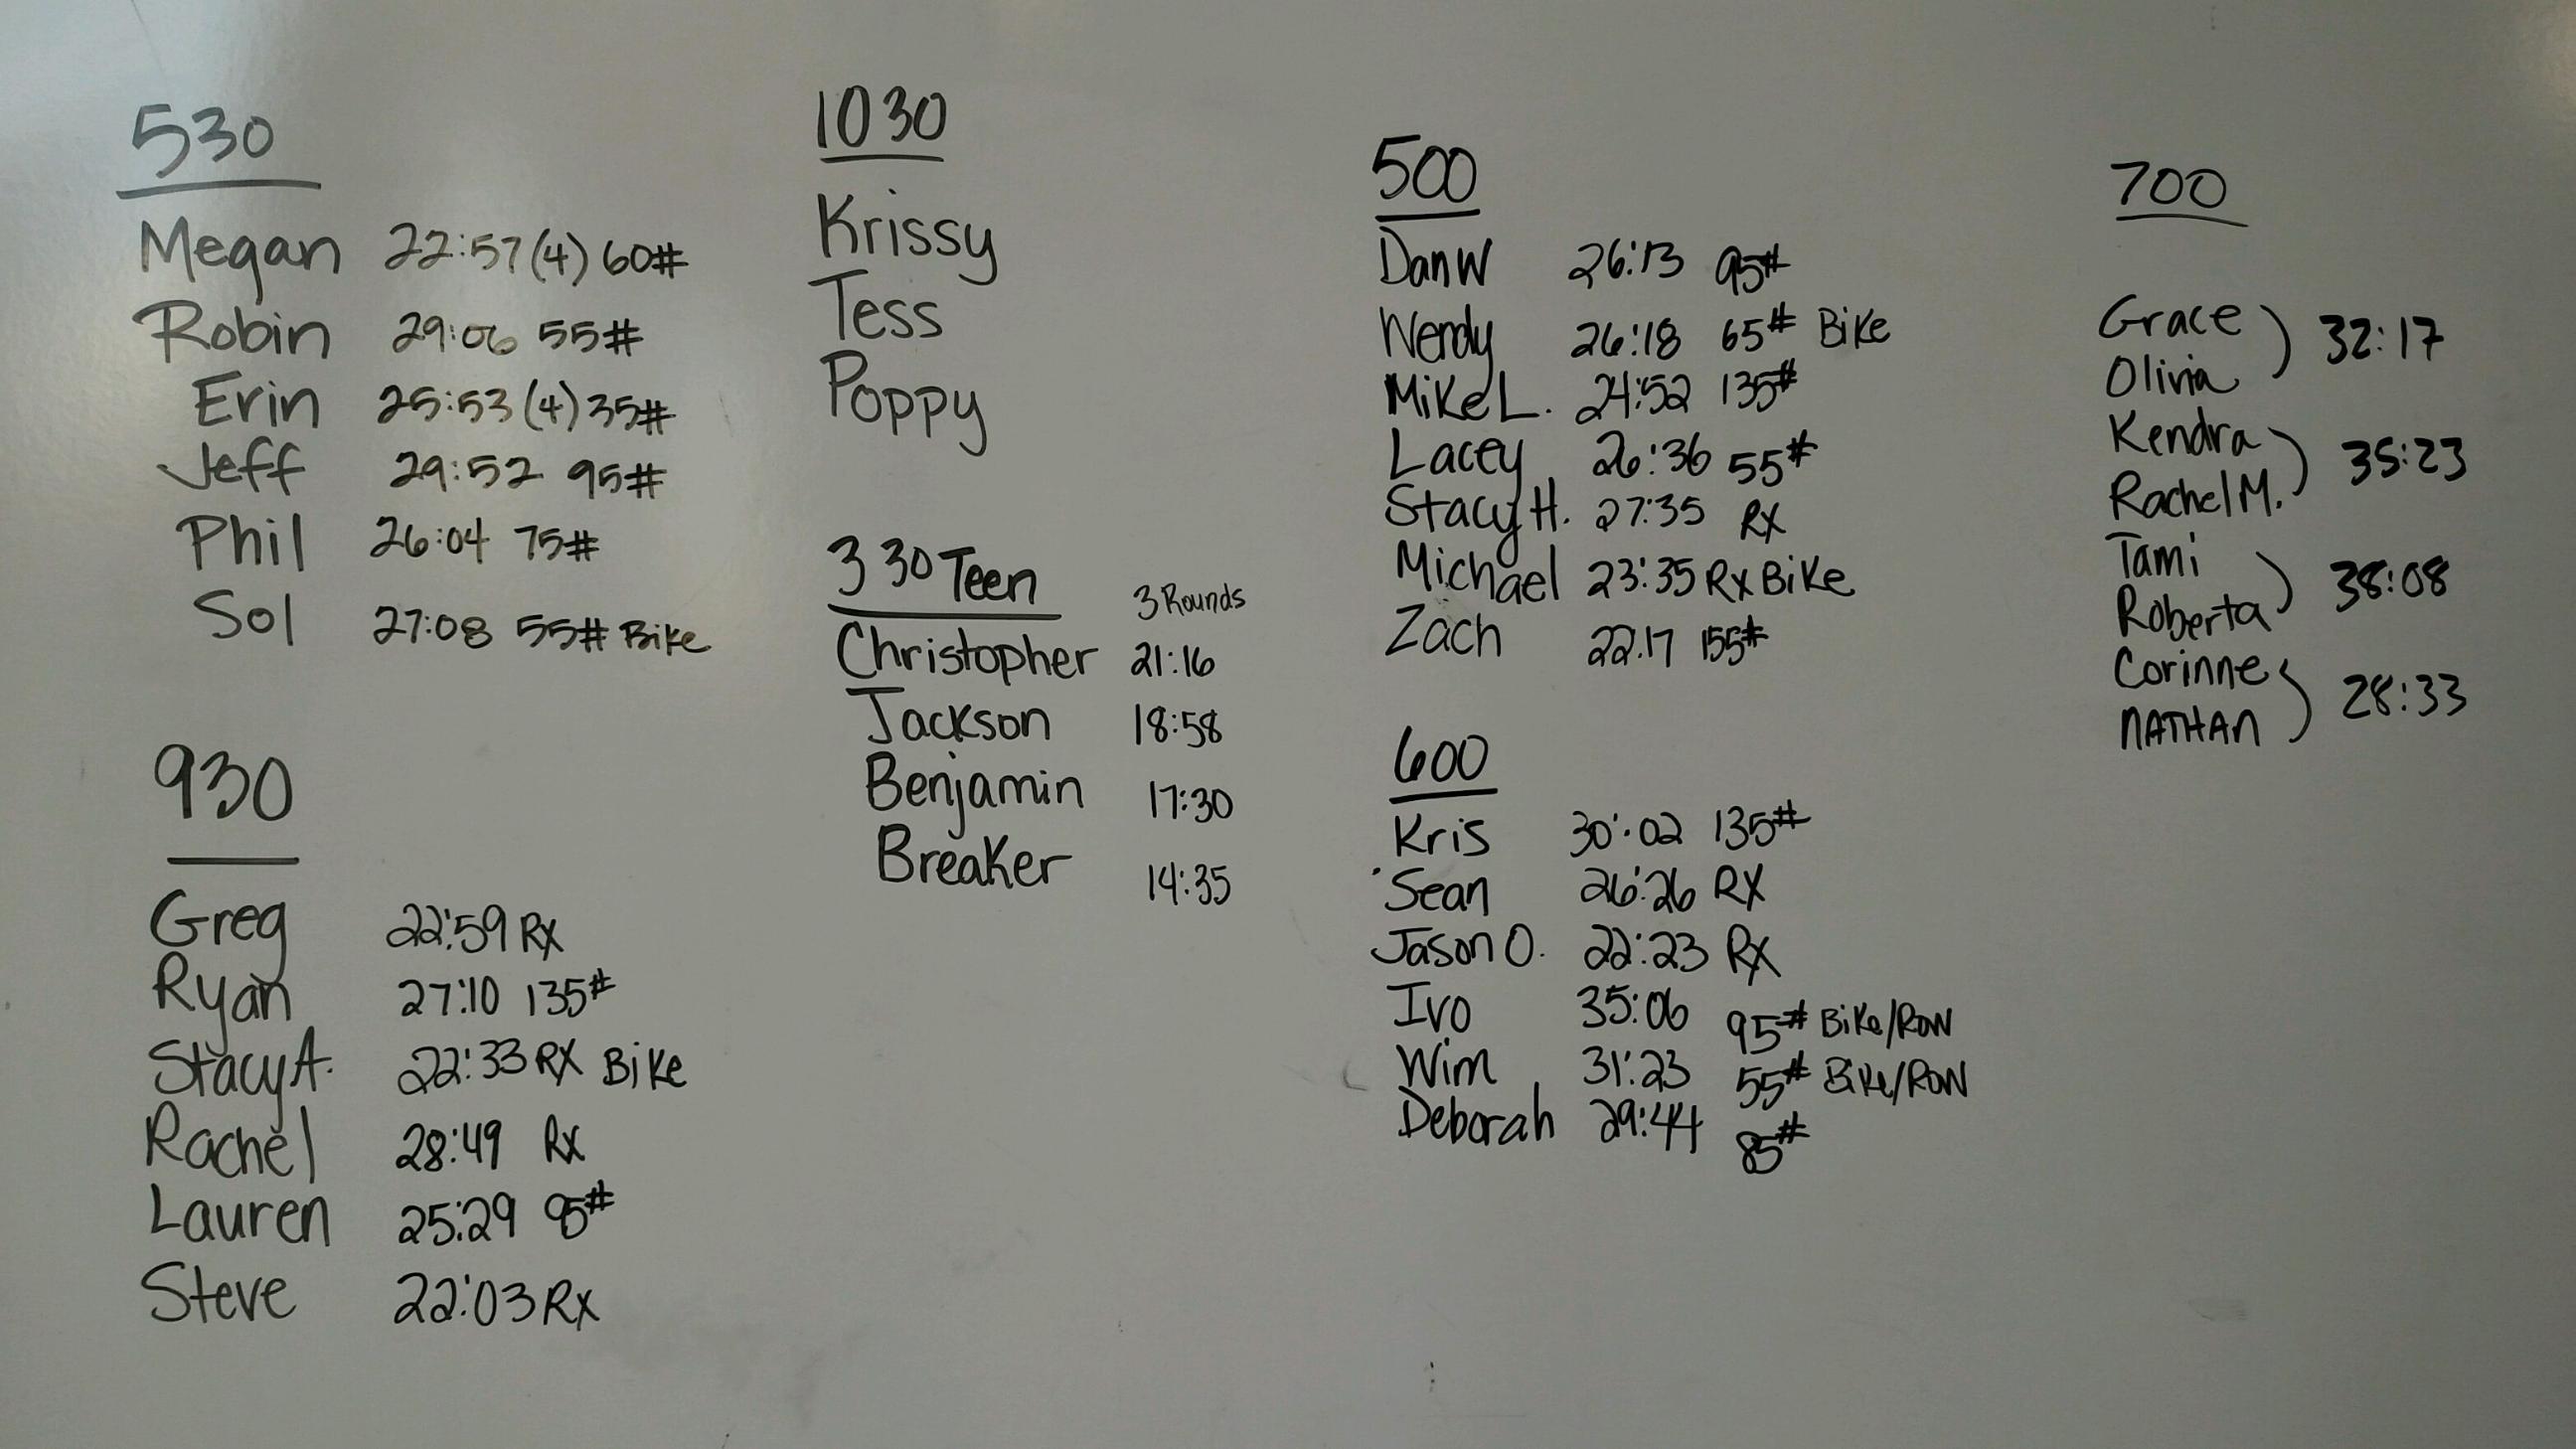 530
Megan 22:57 (4) 60#
Robin 29:06 55#
Erin 25:53 (4) 35#
Jeff 29:52 95#
Phil 26:04 75#
Sol 27:08 55# Bike
930
Greg 22:59 RX
Ryan 27:10 135#
Stacy A. 22:33 RX Bike
Rachel 28:49 Rx
Lauren 25:29 95#
Steve 22:03 Rx
1030
Krissy
Tess
Poppy
330 Teen 3 Rounds
Christopher 21:16
Jackson 18:58
Benjamin 17:30
Breaker 14:35
500
Dan W 26:13 95#
Wendy 26:18 65# Bike
Mike L. 24:52 135#
Lacey 26:36 55#
Stacy H. 27:35 RX
Michael 23:35 RX Bike
Zach 22:17 155#
600
Kris 30:02 135#
Sean 26:26 RX
Jason O. 22:23 RX
Ivo 35:06 95# Bike/Row
Wim 31:23 55# Bike/Row
Deborah 29:44 85#
700
Grace
Olivia ) 32:17
Kendra
Rachel M. ) 35:23
Tami
Roberta ) 38:08
Corinne
NATHAN ) 28:33